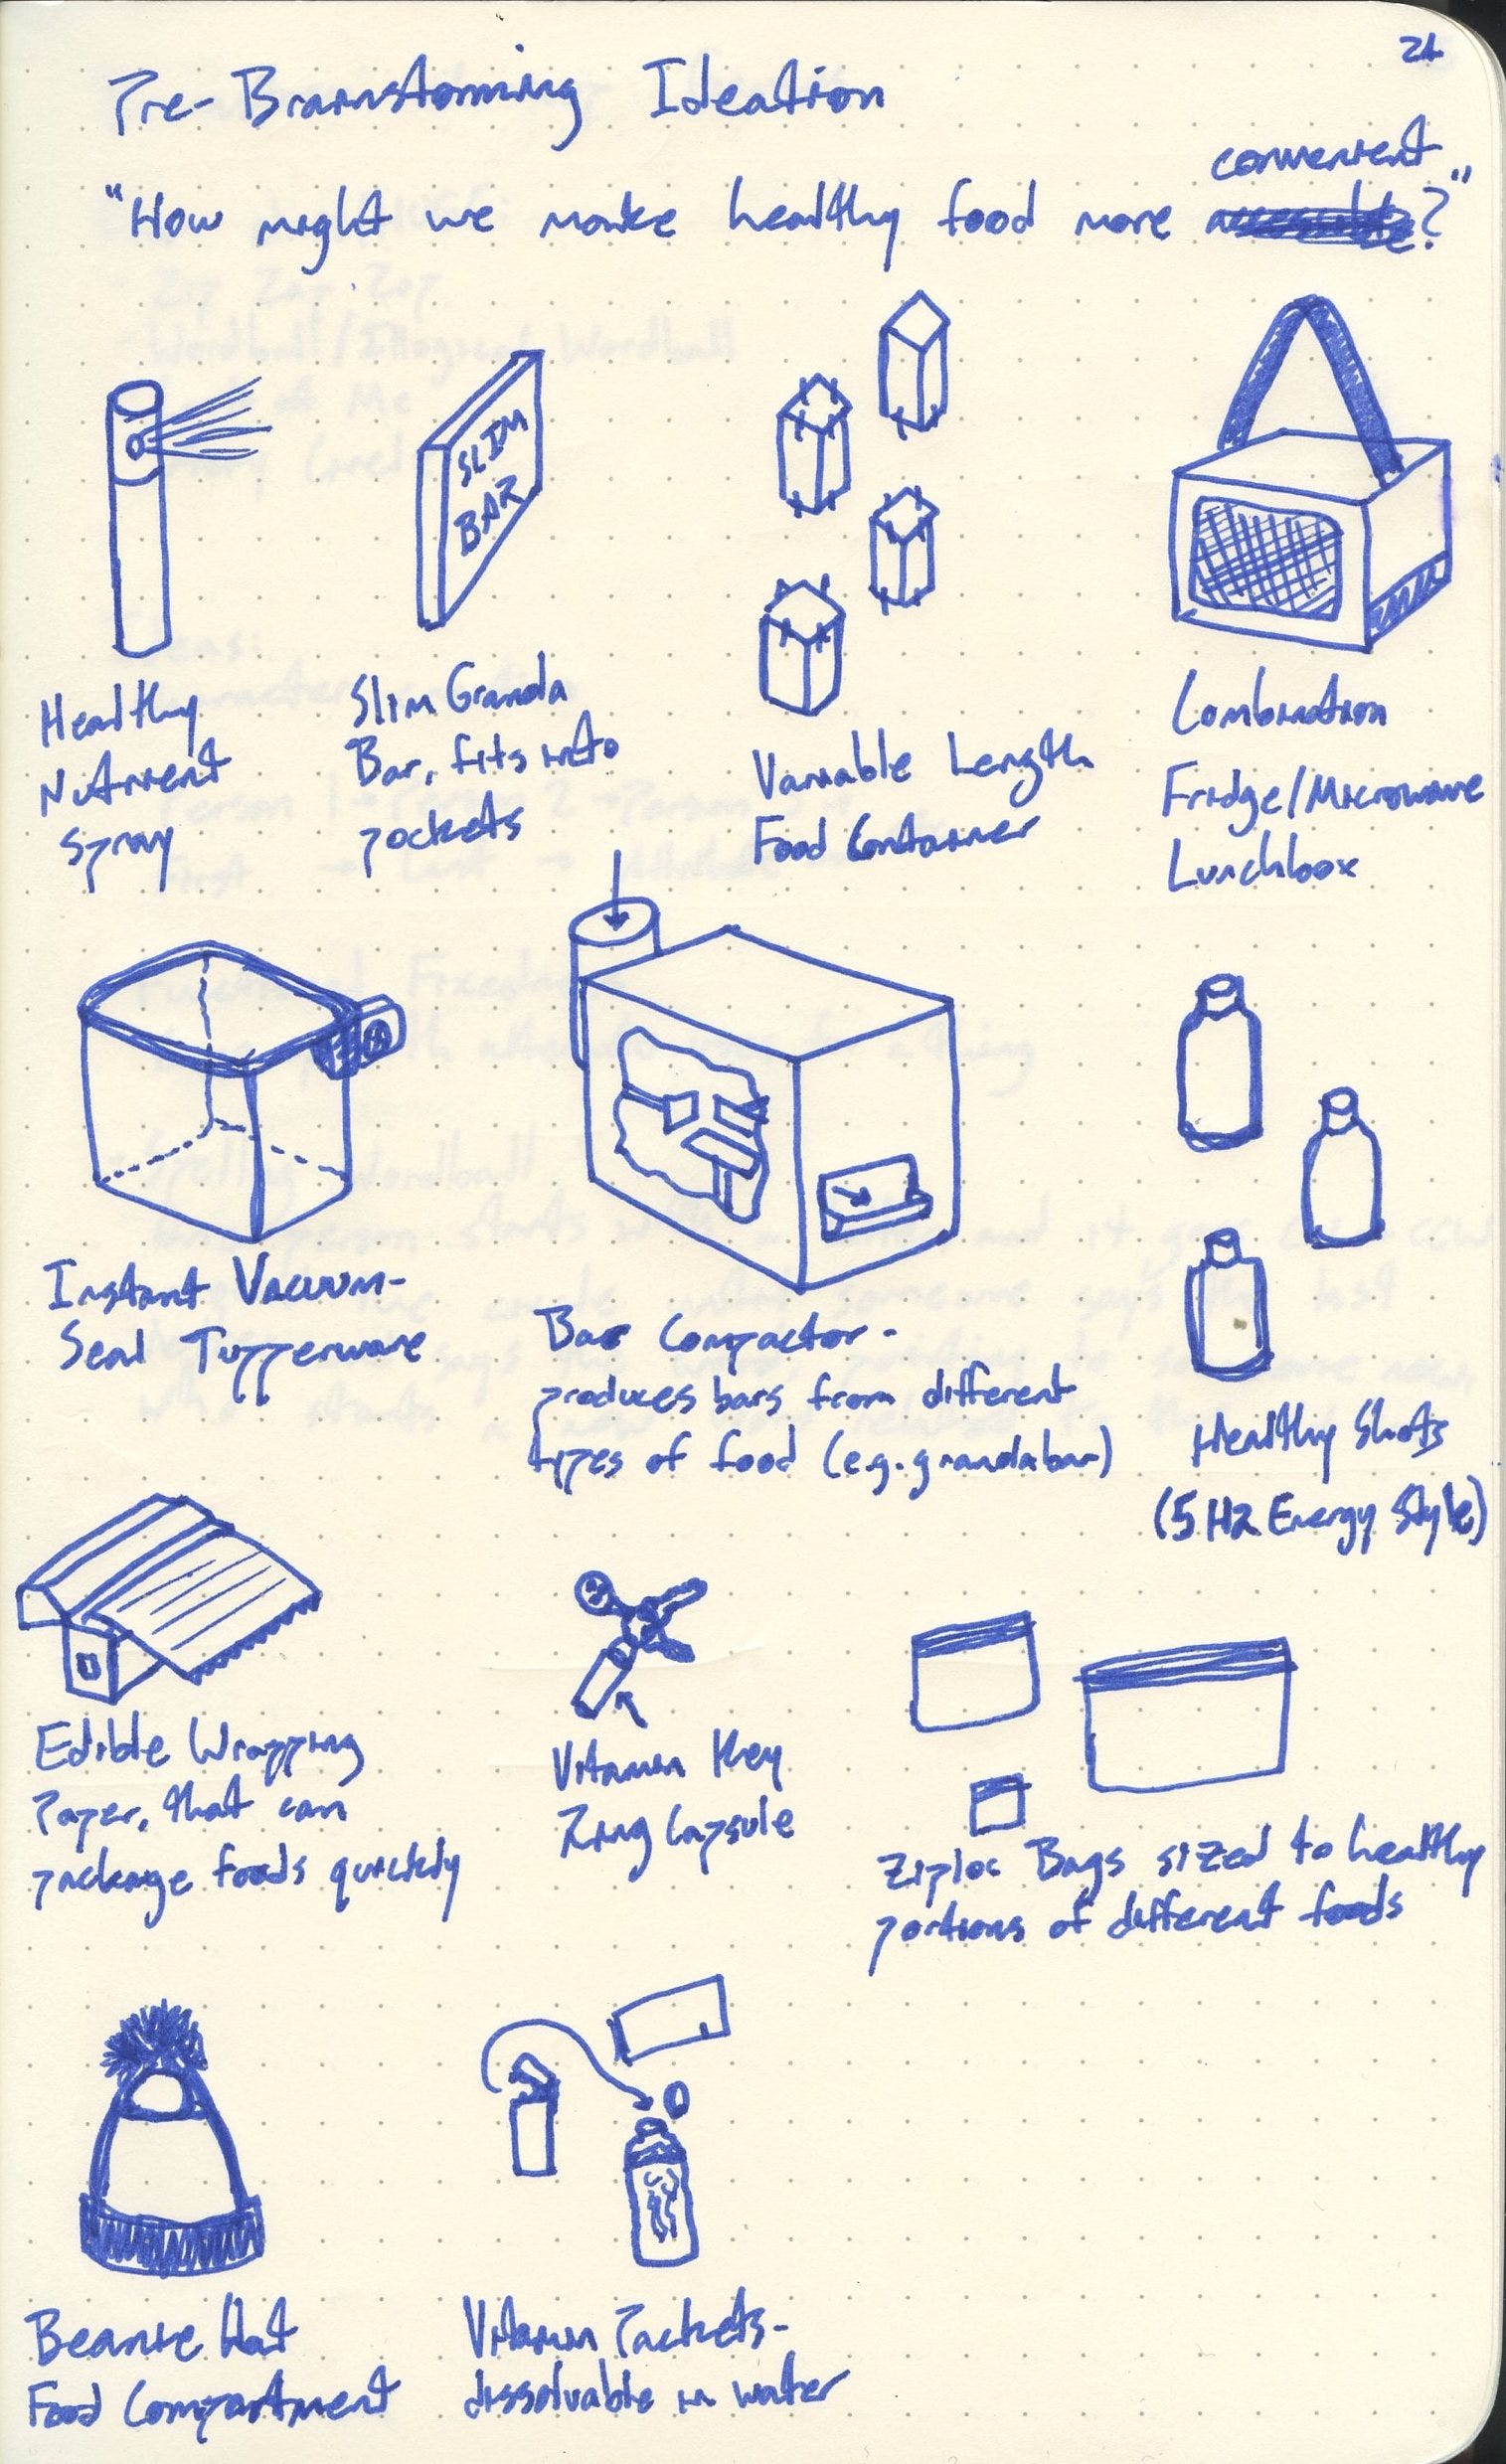 21
Pre-Brainstorming Ideation
convenient
"How might we make healthy food more accessible?"
SLIM
BAR
Healthy
Nutrient
Spray
Slim Granola
Bar, fits into
pockets
Variable Length
Food Container
Combination
Fridge/Microwave
Lunchbox
Instant Vacuum-
Seal Tupperware
Bar Compactor-
produces bars from different
types of food (e.g. granola bar)
Healthy Shots
(5 HR Energy Style)
Edible Wrapping
Paper, that can
package foods quickly
Vitamin Key
Ring Capsule
Ziploc Bags sized to healthy
portions of different foods
Beanie Hat
Food Compartment
Vitamin Packets-
dissolvable in water